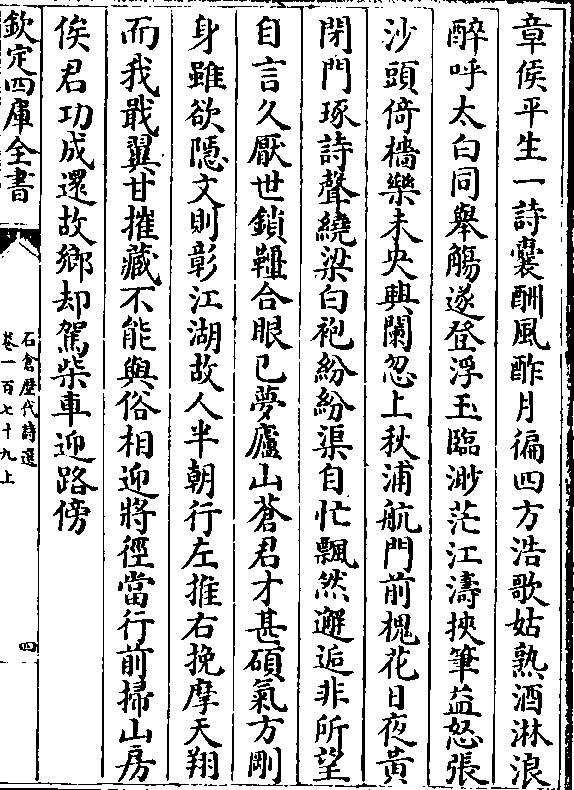 章侯平生一詩囊酬風酢月徧四方浩歌姑熟酒淋浪
醉呼太白同舉觴遂登浮玉臨渺茫江濤挾筆益怒張
沙頭倚檣樂未央興闌忽上秋浦航門前槐花日夜黄
閉門琢詩聲繞梁白袍紛紛渠自忙飄然邂逅非所望
自言久厭世鎖韁合眼已夢廬山蒼君才甚碩氣方剛
身雖欲隱文則彰江湖故人半朝行左推右挽摩天翔
而我戢翼甘摧藏不能與俗相迎將徑當行前掃山房
俟君功成還故鄉却駕柴車迎路傍
欽定四庫全書
石倉歴代詩選
卷一百七十九上
四